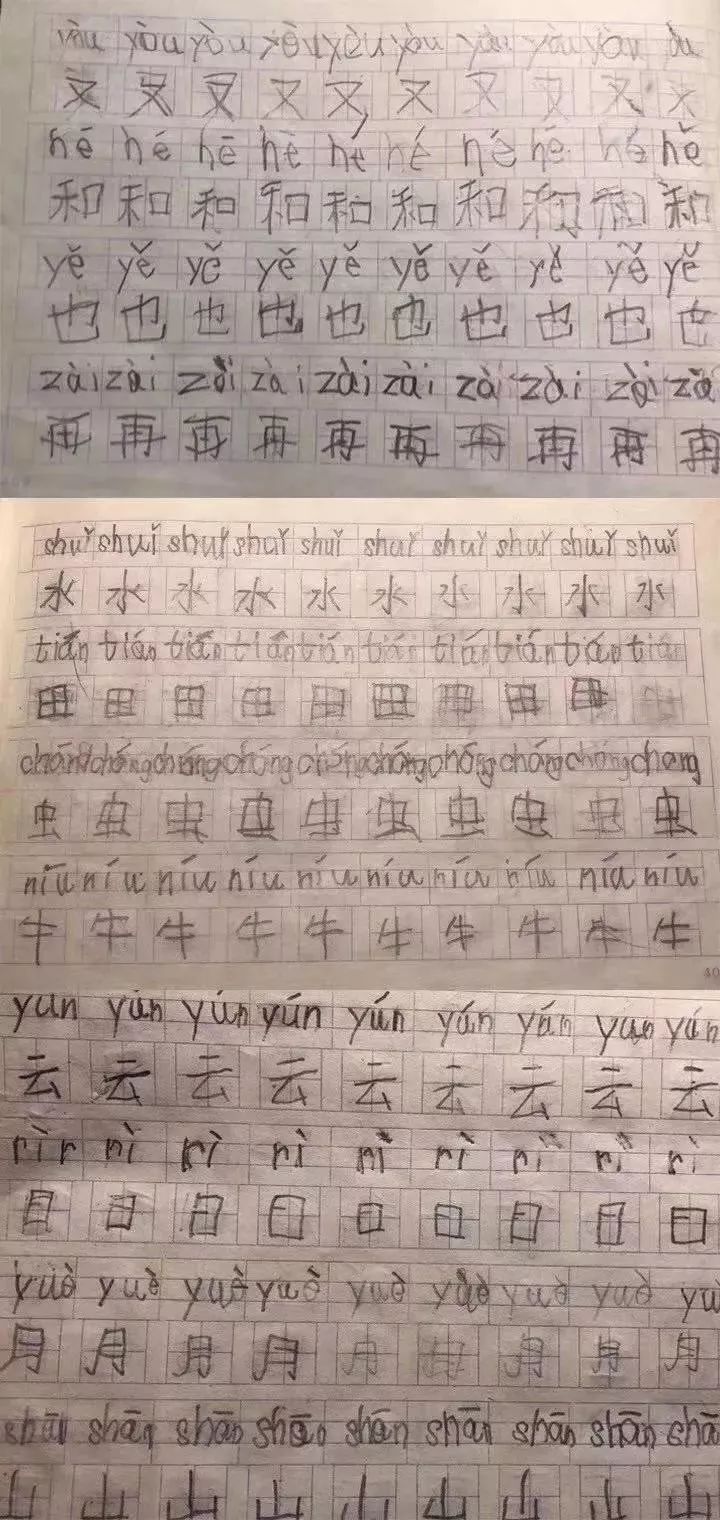 yòu yòu yòu yòu yòu yòu yòu yòu
又 又 又 又 又 又 又 又 又 又
hé hé hē hè hé hé hé hé hé hě
和 和 和 和 和 和 和 和 和 和
yě yě yě yě yě yě yě yě yě yě
也 也 也 也 也 也 也 也 也 也
zài zài zài zài zài zài zài zài zài zà
再 再 再 再 再 再 再 再 再 再
shuǐ shuǐ shuǐ shuǐ shuǐ shuǐ shuǐ shuǐ shuǐ shuǐ
水 水 水 水 水 水 水 水 水 水
tián tián tián tián tián tián tián tián tián tián
田 田 田 田 田 田 田 田 田 田
chóng chóng chóng chóng chóng chóng chóng chóng chong
虫 虫 虫 虫 虫 虫 虫 虫 虫 虫
níu níu níu níu níu níu níu níu níu níu
牛 牛 牛 牛 牛 牛 牛 牛 牛 牛
40
yun yún yún yún yún yún yún yun yún
云 云 云 云 云 云 云 云 云
rì rì rì rì rì rì rì rì
日 日 日 日 日 日 日 日 日
yuè yuè yuè yuè yuè yuè yuè yuè yu
月 月 月 月 月 月 月 月 月
shān shān shān shān shān shān shān shā
山 山 山 山 山 山 山 山 山